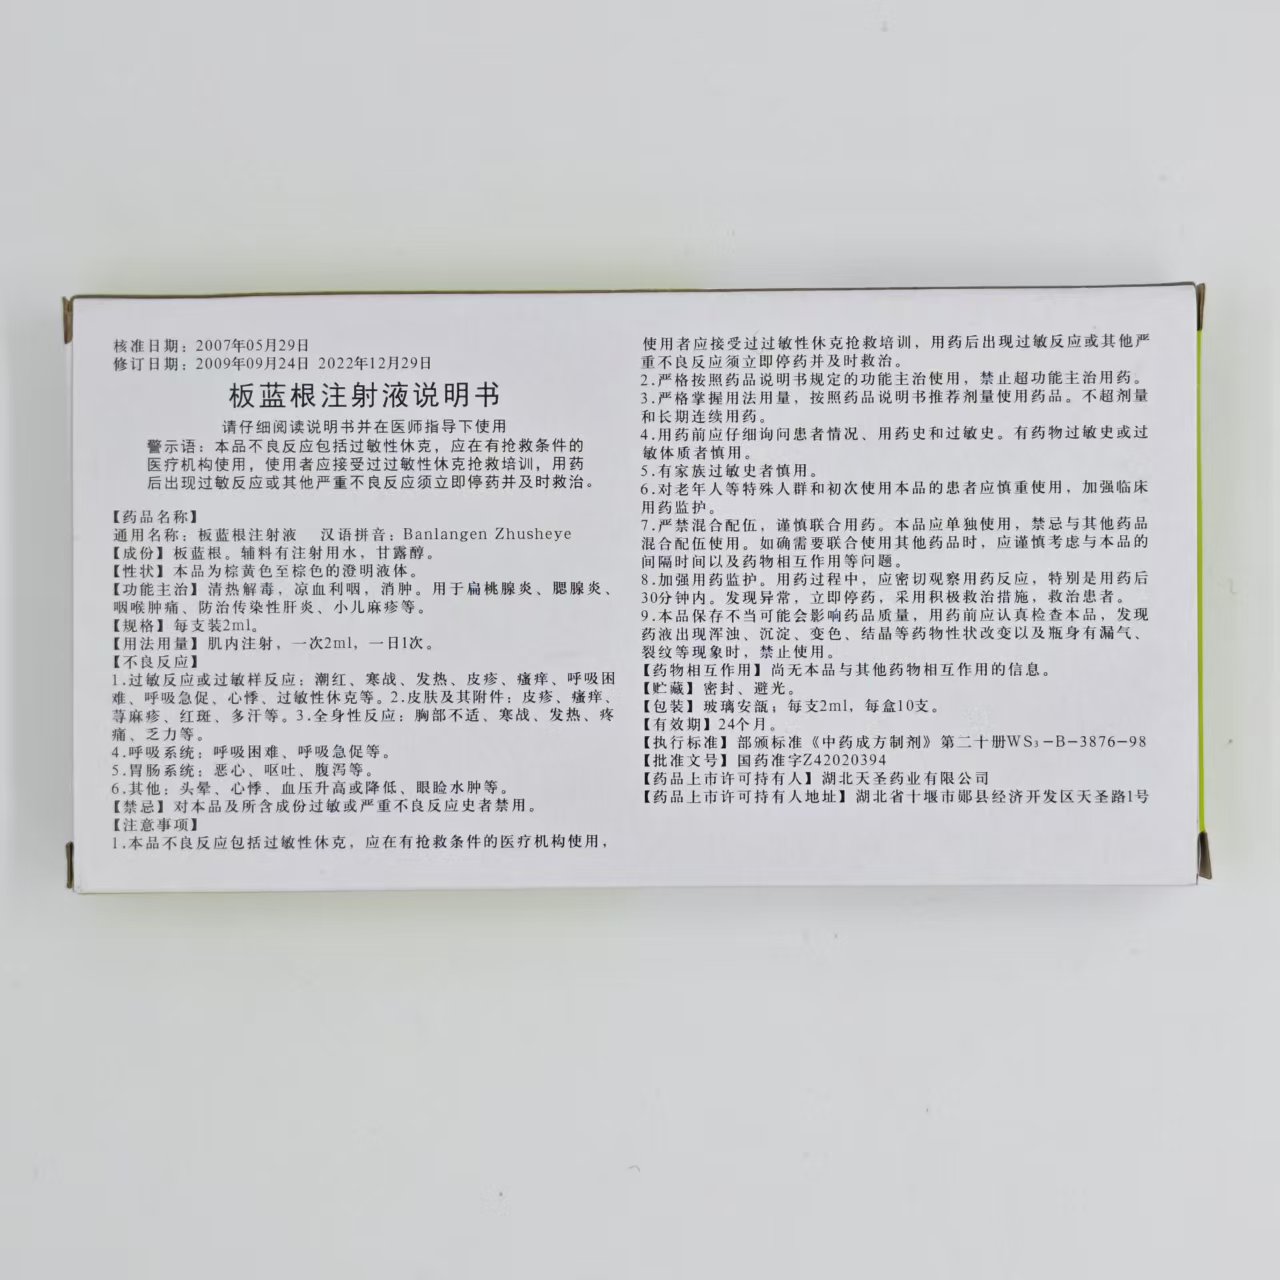 核准日期：2007年05月29日
修订日期：2009年09月24日 2022年12月29日
板蓝根注射液说明书
请仔细阅读说明书并在医师指导下使用
警示语：本品不良反应包括过敏性休克，应在有抢救条件的
医疗机构使用，使用者应接受过过敏性休克抢救培训，用药
后出现过敏反应或其他严重不良反应须立即停药并及时救治。
【药品名称】
通用名称：板蓝根注射液 汉语拼音：Banlangen Zhusheye
【成份】板蓝根。辅料有注射用水，甘露醇。
【性状】本品为棕黄色至棕色的澄明液体。
【功能主治】清热解毒，凉血利咽，消肿。用于扁桃腺炎、腮腺炎、
咽喉肿痛、防治传染性肝炎、小儿麻疹等。
【规格】每支装2ml。
【用法用量】肌内注射，一次2ml，一日1次。
【不良反应】
1.过敏反应或过敏样反应：潮红、寒战、发热、皮疹、瘙痒、呼吸困
难、呼吸急促、心悸、过敏性休克等。2.皮肤及其附件：皮疹、瘙痒、
荨麻疹、红斑、多汗等。3.全身性反应：胸部不适、寒战、发热、疼
痛、乏力等。
4.呼吸系统：呼吸困难、呼吸急促等。
5.胃肠系统：恶心、呕吐、腹泻等。
6.其他：头晕、心悸、血压升高或降低、眼睑水肿等。
【禁忌】对本品及所含成份过敏或严重不良反应史者禁用。
【注意事项】
1.本品不良反应包括过敏性休克，应在有抢救条件的医疗机构使用，
使用者应接受过过敏性休克抢救培训，用药后出现过敏反应或其他严
重不良反应须立即停药并及时救治。
2.严格按照药品说明书规定的功能主治使用，禁止超功能主治用药。
3.严格掌握用法用量，按照药品说明书推荐剂量使用药品。不超剂量
和长期连续用药。
4.用药前应仔细询问患者情况、用药史和过敏史。有药物过敏史或过
敏体质者慎用。
5.有家族过敏史者慎用。
6.对老年人等特殊人群和初次使用本品的患者应慎重使用，加强临床
用药监护。
7.严禁混合配伍，谨慎联合用药。本品应单独使用，禁忌与其他药品
混合配伍使用。如确需要联合使用其他药品时，应谨慎考虑与本品的
间隔时间以及药物相互作用等问题。
8.加强用药监护。用药过程中，应密切观察用药反应，特别是用药后
30分钟内。发现异常，立即停药，采用积极救治措施，救治患者。
9.本品保存不当可能会影响药品质量，用药前应认真检查本品，发现
药液出现浑浊、沉淀、变色、结晶等药物性状改变以及瓶身有漏气、
裂纹等现象时，禁止使用。
【药物相互作用】尚无本品与其他药物相互作用的信息。
【贮藏】密封、避光。
【包装】玻璃安瓿；每支2ml，每盒10支。
【有效期】24个月。
【执行标准】部颁标准《中药成方制剂》第二十册WS₃-B-3876-98
【批准文号】国药准字Z42020394
【药品上市许可持有人】湖北天圣药业有限公司
【药品上市许可持有人地址】湖北省十堰市郧县经济开发区天圣路1号